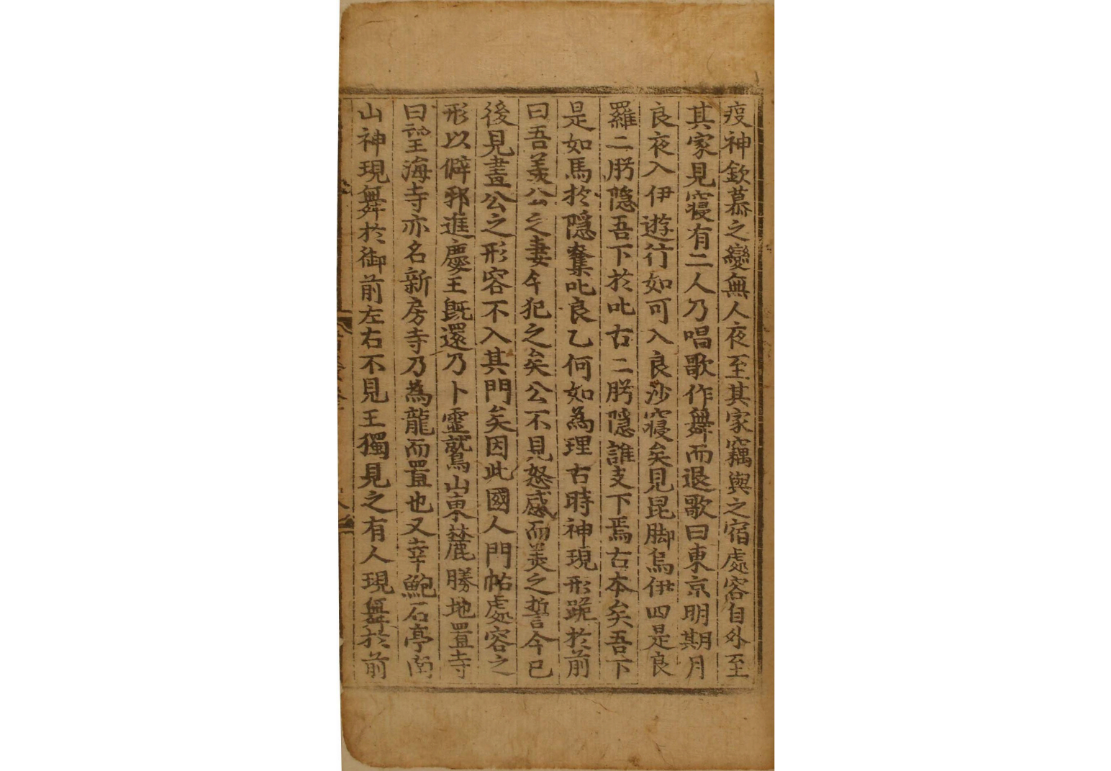 疫神欽慕之變無人夜至其家竊與之宿處容自外至
其家見寢有二人乃唱歌作舞而退歌曰東京明期月
良夜入伊遊行如可入良沙寢矣見昆脚烏伊四是良
羅二肹隱吾下於叱古二肹隱誰支下焉古本矣吾下
是如馬於隱奪叱良乙何如為理古時神現形跪於前
曰吾羨公之妻今犯之矣公不見怒感而美之誓今已
後見畫公之形容不入其門矣因此國人門帖處容之
形以僻邪進慶王既還乃卜靈鷲山東麓勝地置寺
曰望海寺亦名新房寺乃為龍而置也又幸鮑石亭南
山神現舞於御前左右不見王獨見之有人現舞於前